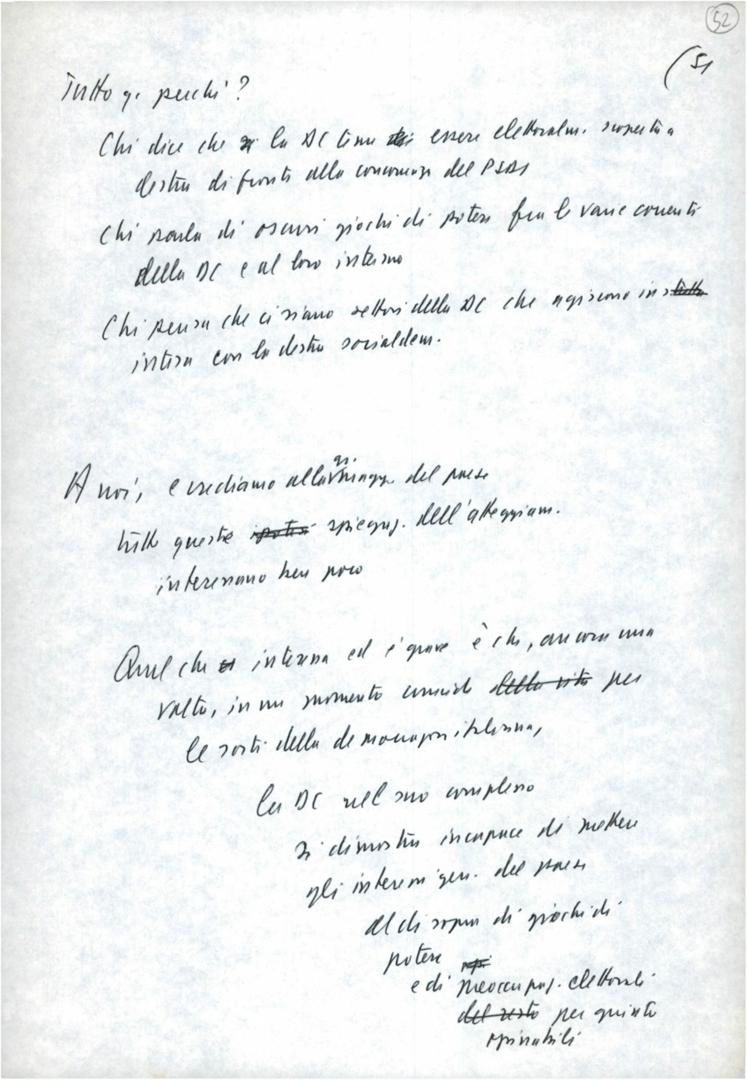 52
(51
Tutto q. perché?
Chi dice che si la DC teme di essere elettoralm. scoperta a
destra di fronte alla concorrenza del PSDI
Chi parla di oscuri giochi di potere fra le varie correnti
della DC e al loro interno
Chi pensa che ci siano settori della DC che agiscono in
intesa con la destra socialdem.
A noi, e crediamo alla gr. maggr. del paese
tutte queste ipotesi spiegaz. dell'atteggiam.
interessano ben poco
Quel che interessa ed è grave è che, ancora una
volta, in un momento cruciale della vita per
le sorti della democrazia italiana,
la DC nel suo complesso
si dimostra incapace di mettere
gli interessi gen. del paese
al di sopra di giochi di
potere
e di preoccupaz. elettorali
del resto per quanto
opinabili